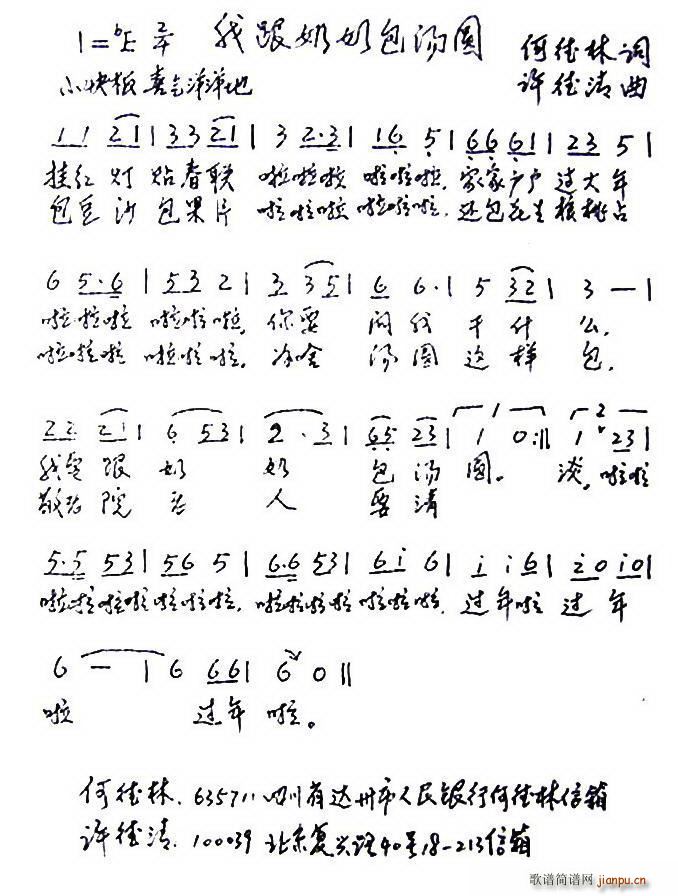 1=ᵇE 2/4 我跟奶奶包汤圆 何德林 词
小快板 喜气洋洋地 许德清 曲
1 1 2 1 | 3 3 2 1 | 3 2·3 | 1 6 5 | 6 6 6 1 | 2 3 5 |
挂红灯 贴春联 啦啦啦 啦啦啦, 家家户户 过大年
包豆沙 包果片 啦啦啦 啦啦啦, 还包花生 核桃占
6 5·6 | 5 3 2 | 3 3 5 | 6 6· | 5 3 2 | 3 — |
啦啦啦 啦啦啦, 你要 问我 干什么,
啦啦啦 啦啦啦, 冷啥 汤圆 这样包,
2 2 2 1 | 6 5 3 | 2·3 | 6 5 2 3 | 1 0 :|| 1 2 3 |
我要跟奶奶 包汤圆。 淡, 啦啦
敬老院老人 要清
5·5 5 3 | 5 6 5 | 6·6 5 3 | 6 i 6 | i i 6 | 2 0 i 0 |
啦啦啦啦 啦啦啦, 啦啦啦啦 啦啦啦, 过年啦 过年
6 — | 6 6 6 | 6 0 ||
啦 过年啦。
何德林. 635711 四川省达州市人民银行何德林信箱
许德清. 100039 北京复兴路40号18-213信箱
歌谱简谱网
jianpu.cn